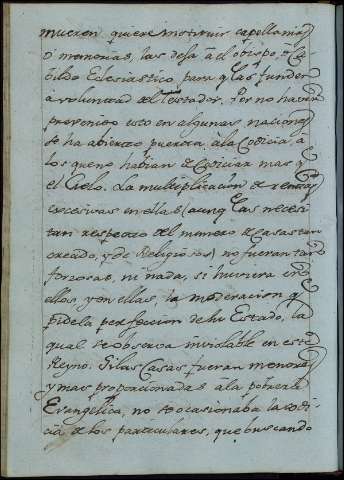 mueren quiere instituir capellanias
ò memorias, las deja à el obispo, ò Ca-
bildo Eclesiastico para q las funden
à voluntad del Testador. Por no haver
prevenido esto en algunas naciones
se ha abierto puerta à la Codicia, a
los que no habian de Codiciar mas q
el Cielo. La multiplicacion de rentas
excesivas en ellas (aunq las necesi-
tan respecto del numero de Casas
creado, y de Religiosos) no fueran tan
forzosas, ni nada, si huviera en
ellos y en ellas, la moderacion q
pide la perfeccion de su Estado, la
qual se observa inviolable en este
Reyno. Si las Casas fueran menores
y mas proporcionadas a la pobreza
Evangelica, no se ocasionaba la codi-
cia de los particulares, que buscando